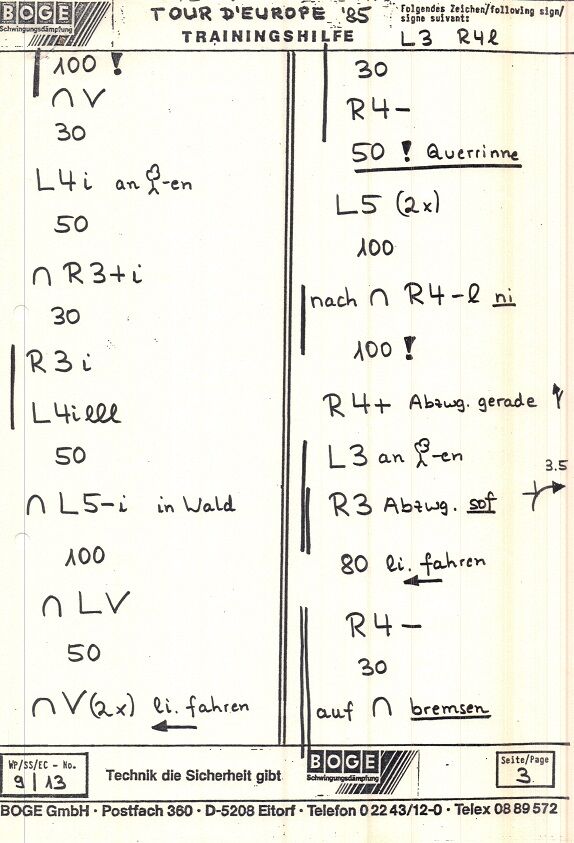 BOGE
Schwingungsdämpfung
TOUR D'EUROPE '85
TRAININGSHILFE
Folgendes Zeichen/following sign/
signe suivant:
L3 R4l
100 !
∩ V
30
L4i an -en
50
∩ R3+i
30
R3i
L4illl
50
∩ L5-i in Wald
100
∩ LV
50
∩ V(2x) li. fahren
30
R4-
50 ! Querrinne
L5 (2x)
100
nach ∩ R4-l ni
100 !
R4+ Abzwg. gerade
L3 an -en
3.5
R3 Abzwg. sof
80 li. fahren
R4-
30
auf ∩ bremsen
WP/SS/EC - No.
9 | 13
Technik die Sicherheit gibt
BOGE
Schwingungsdämpfung
Seite/Page
3
BOGE GmbH · Postfach 360 · D-5208 Eitorf · Telefon 0 22 43/12-0 · Telex 08 89 572